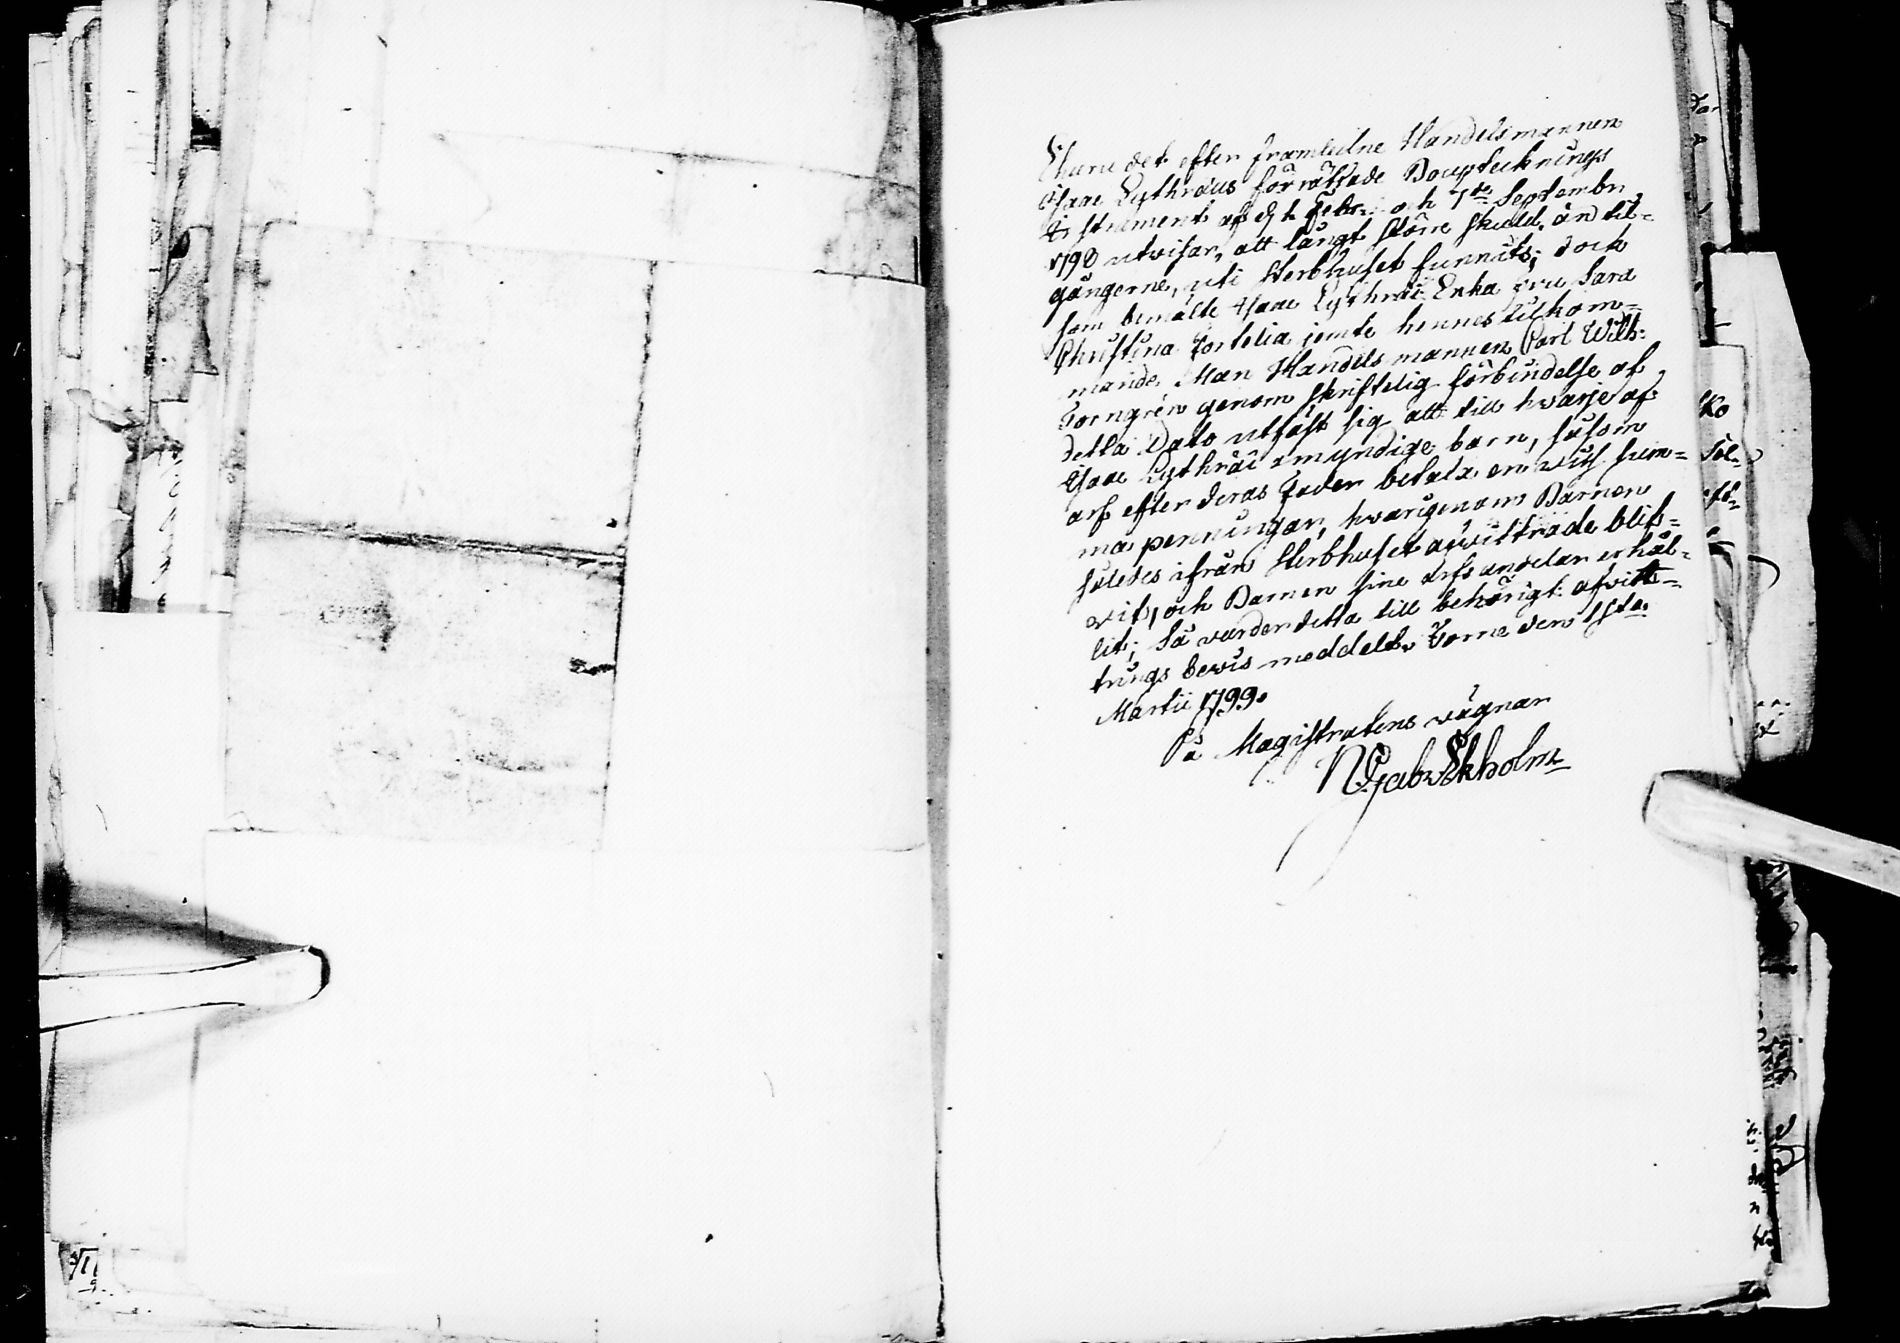 Ehuru det efter framledne Handelsmannen
Isaac Lythræus förrättade Boupteknings
Instrument af d. Febr. och 7de Septembr.
1798 utvisar, att långt större skuld, än till=
gångerne, uti Sterbhuset funnits; dock
som bemälte Isaac Lythræi Enka Fru Sara
Christina Fortelia jemte hennes tillkom=
mande Man Handelsmannen Carl Wilh:
Torngrén genom skriftelig förbindelse af
detta Dato utfäst sig att till hvarje af
Isaac Lythræi omyndige barn, såsom
arf efter deras Fader betala en viss sum=
ma penningar, hvarigenom Barnen
således ifrån Sterbhuset afvittrade blif=
vit, och Barnen sine arfs andelar erhål=
lit; Så varder detta till behörigt afvitt=
rings bevis meddelt. Torne den 1sta
Martii 1799.
På Magistratens vägnar
Gab. Ekholm